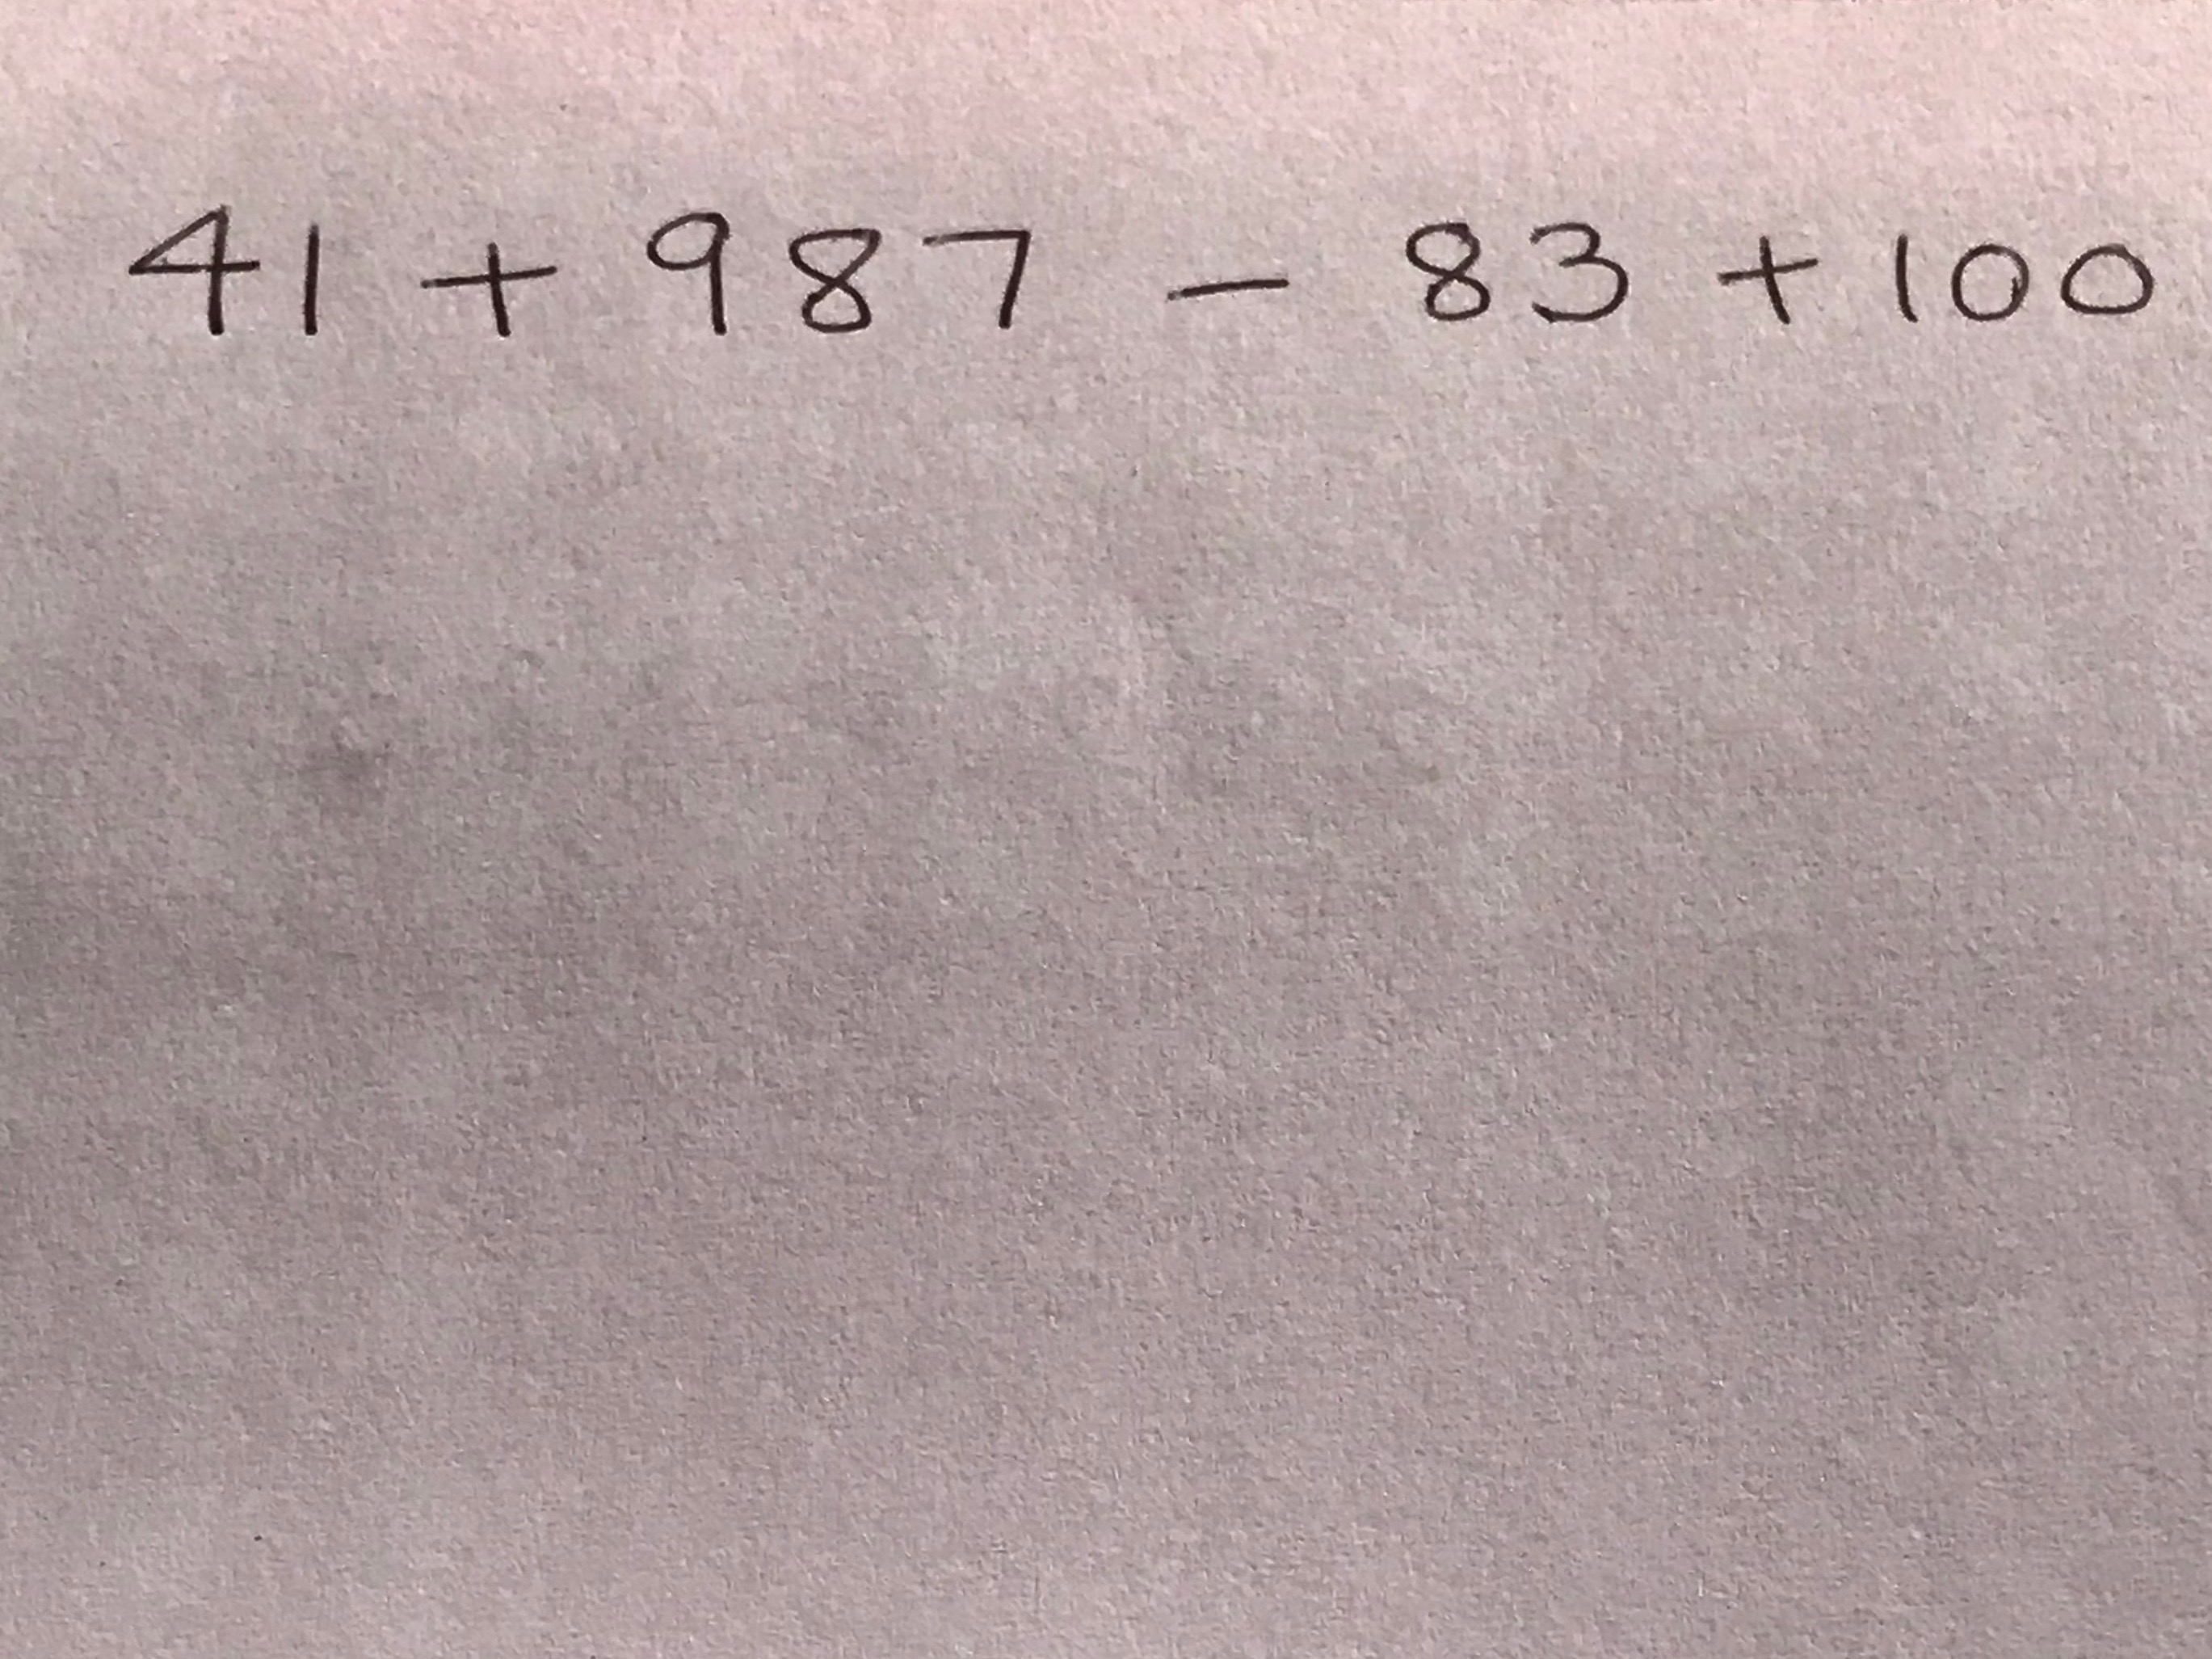 41 + 987 - 83 + 100